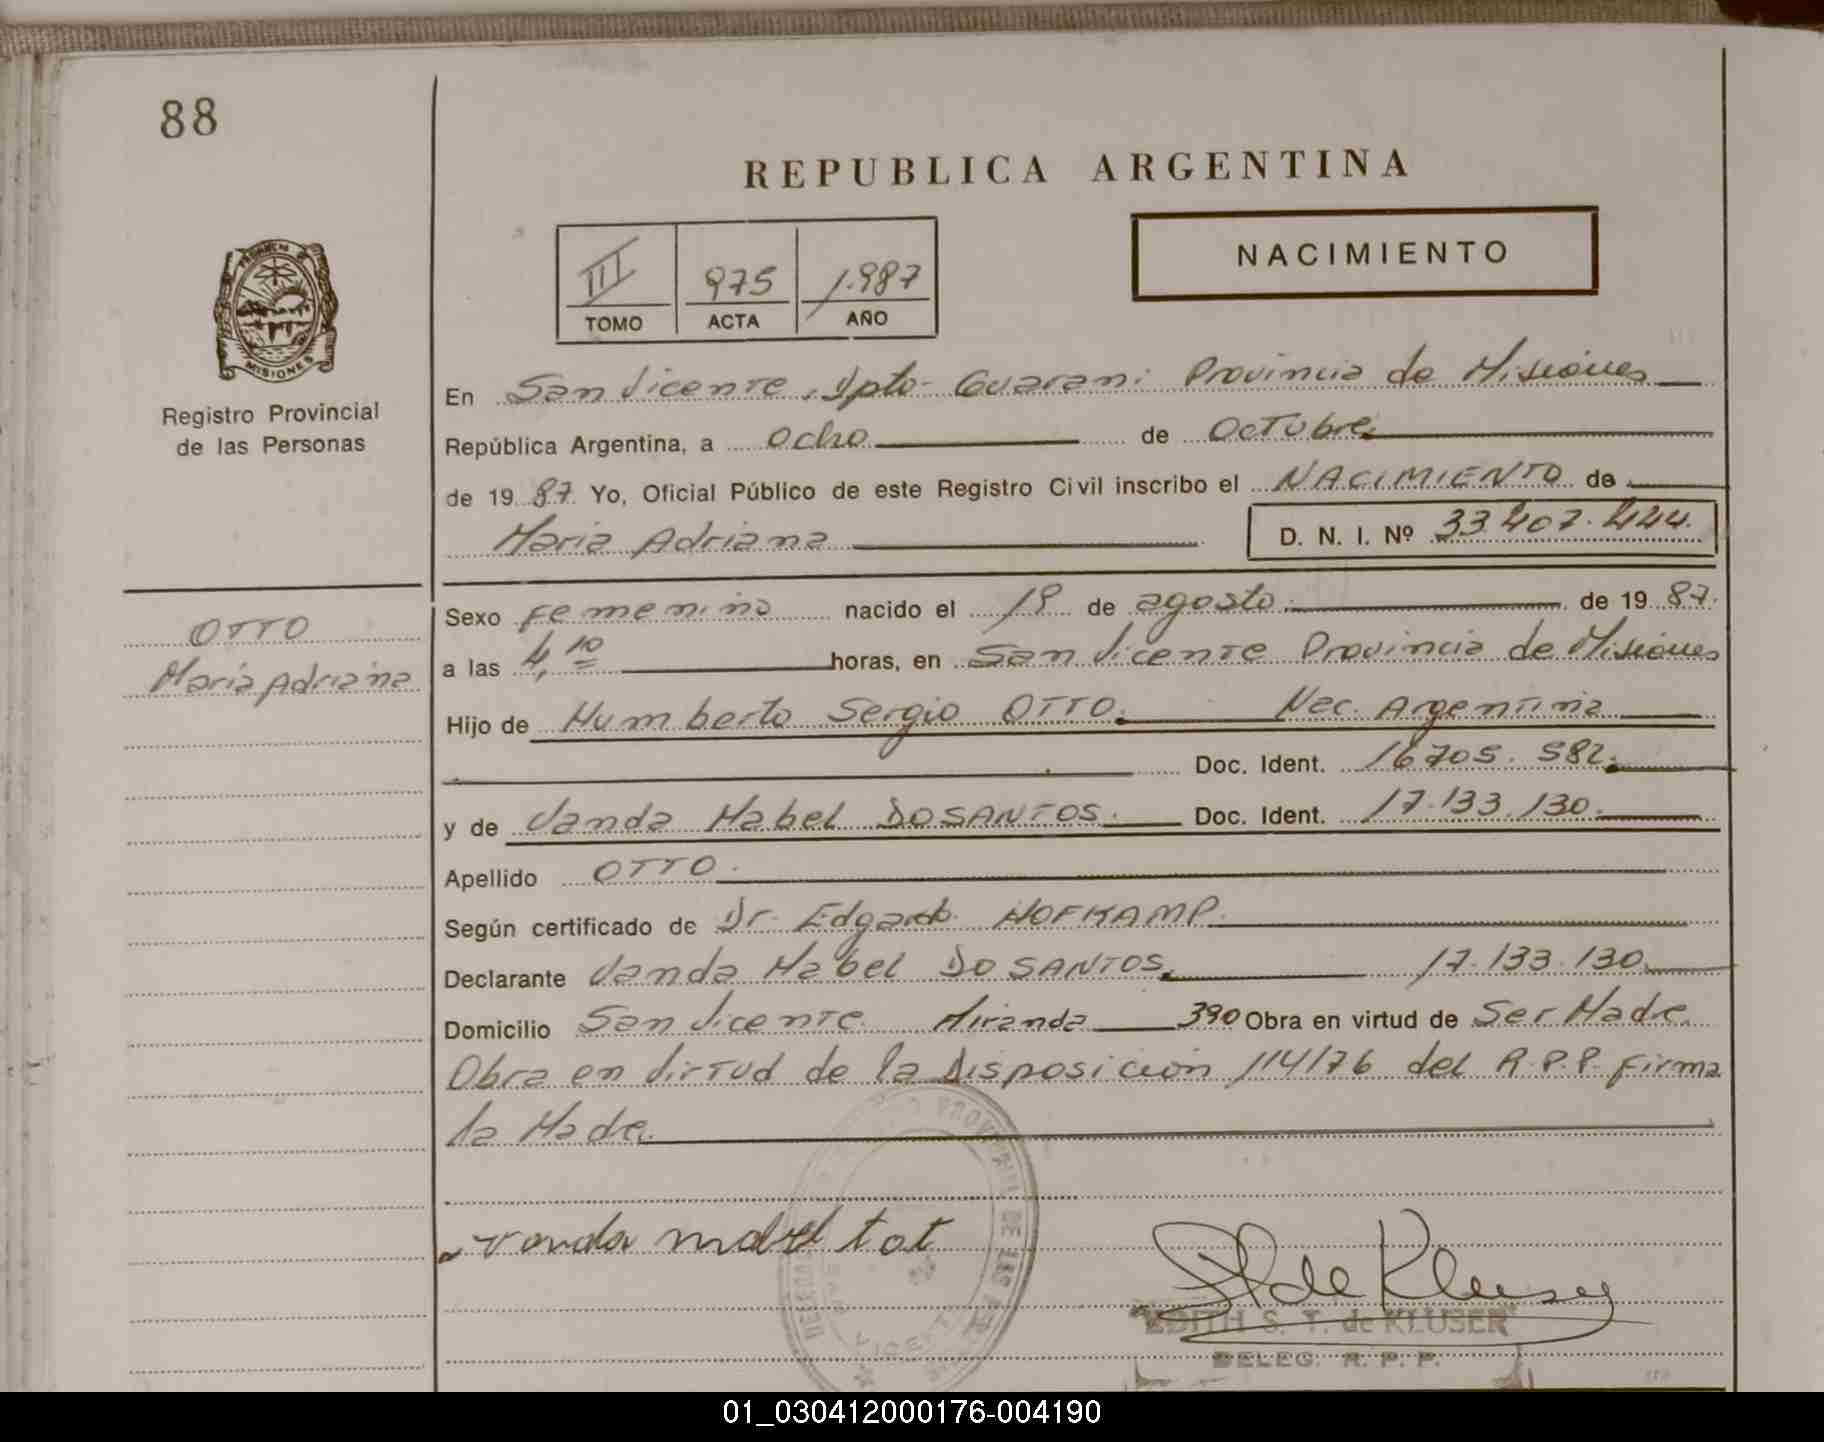 88
REPUBLICA ARGENTINA
NACIMIENTO
III 975 1.987
TOMO ACTA AÑO
MISIONES
Registro Provincial
de las Personas
En San Vicente, Dpto- Guarani Provincia de Misiones
República Argentina, a Ocho de Octubre
de 19 87. Yo, Oficial Público de este Registro Civil inscribo el NACIMIENTO de
Maria Adriana D. N. I. Nº 33 407. 444.
OTTO
Maria Adriana
Sexo Femenino nacido el 19 de agosto. de 19 87.
a las 4,10 horas, en San Vicente Provincia de Misiones
Hijo de Humberto Sergio OTTO. Nac. Argentina
Doc. Ident. 16 705. 582.
y de Vanda Mabel DOSANTOS. Doc. Ident. 17.133.130.
Apellido OTTO.
Según certificado de Dr. Edgardo HOFKAMP.
Declarante Vanda Mabel DO SANTOS. 17.133.130.
Domicilio San Vicente. Miranda 390 Obra en virtud de Ser Madre.
Obra en Virtud de la Disposición 114/76 del R.P.P. firma
la Madre.
vanda mabel
EDITH S. T. de KLUSER
DELEG. R. P. P.
01_030412000176-004190